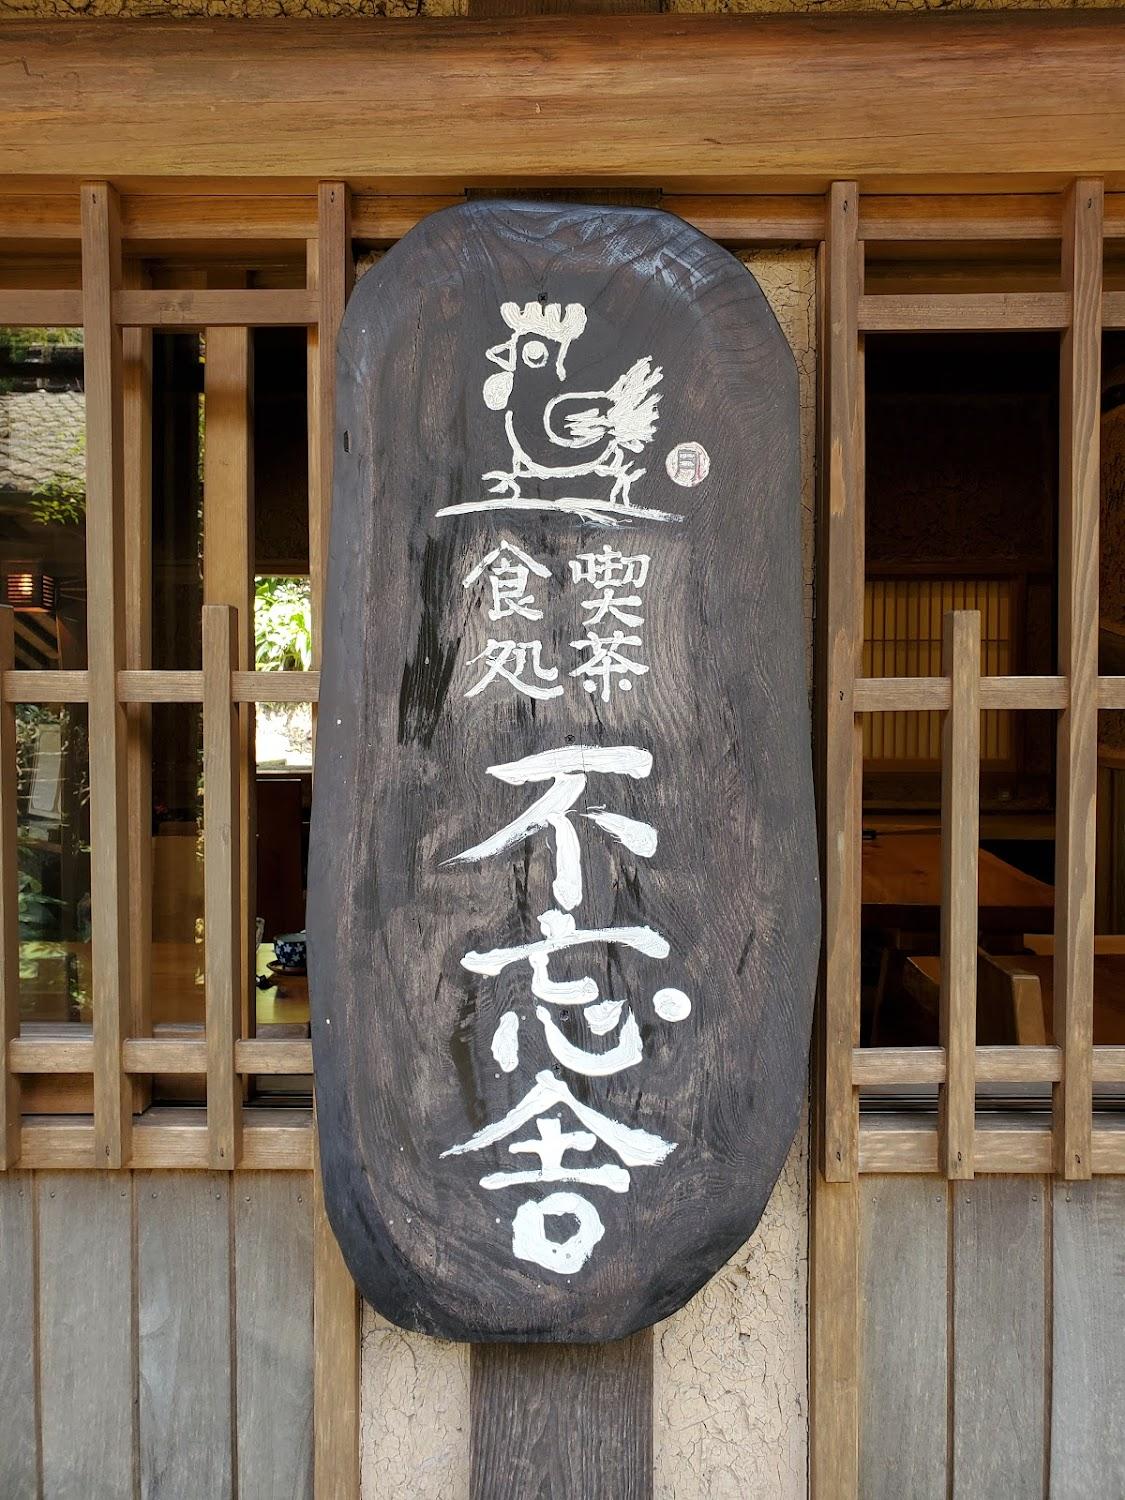 喫茶
食処
不忘舎